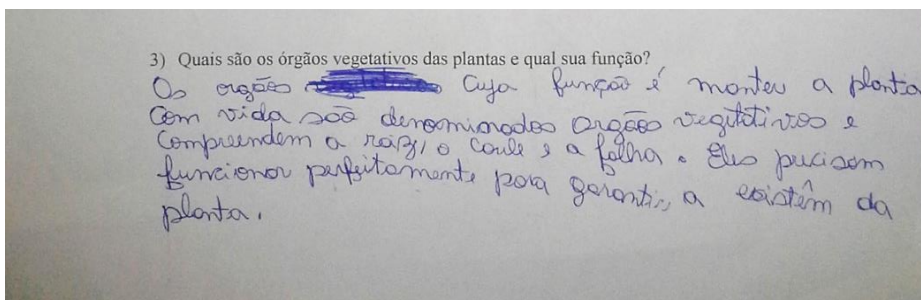 3) Quais são os órgãos vegetativos das plantas e qual sua função?
Os orgãos cuja função é manter a planta
com vida são denominados orgãos vegitativos e
compreendem a raiz, o caule e a folha. Eles precisam
funcionar perfeitamente para garantir, a existêm da
planta.